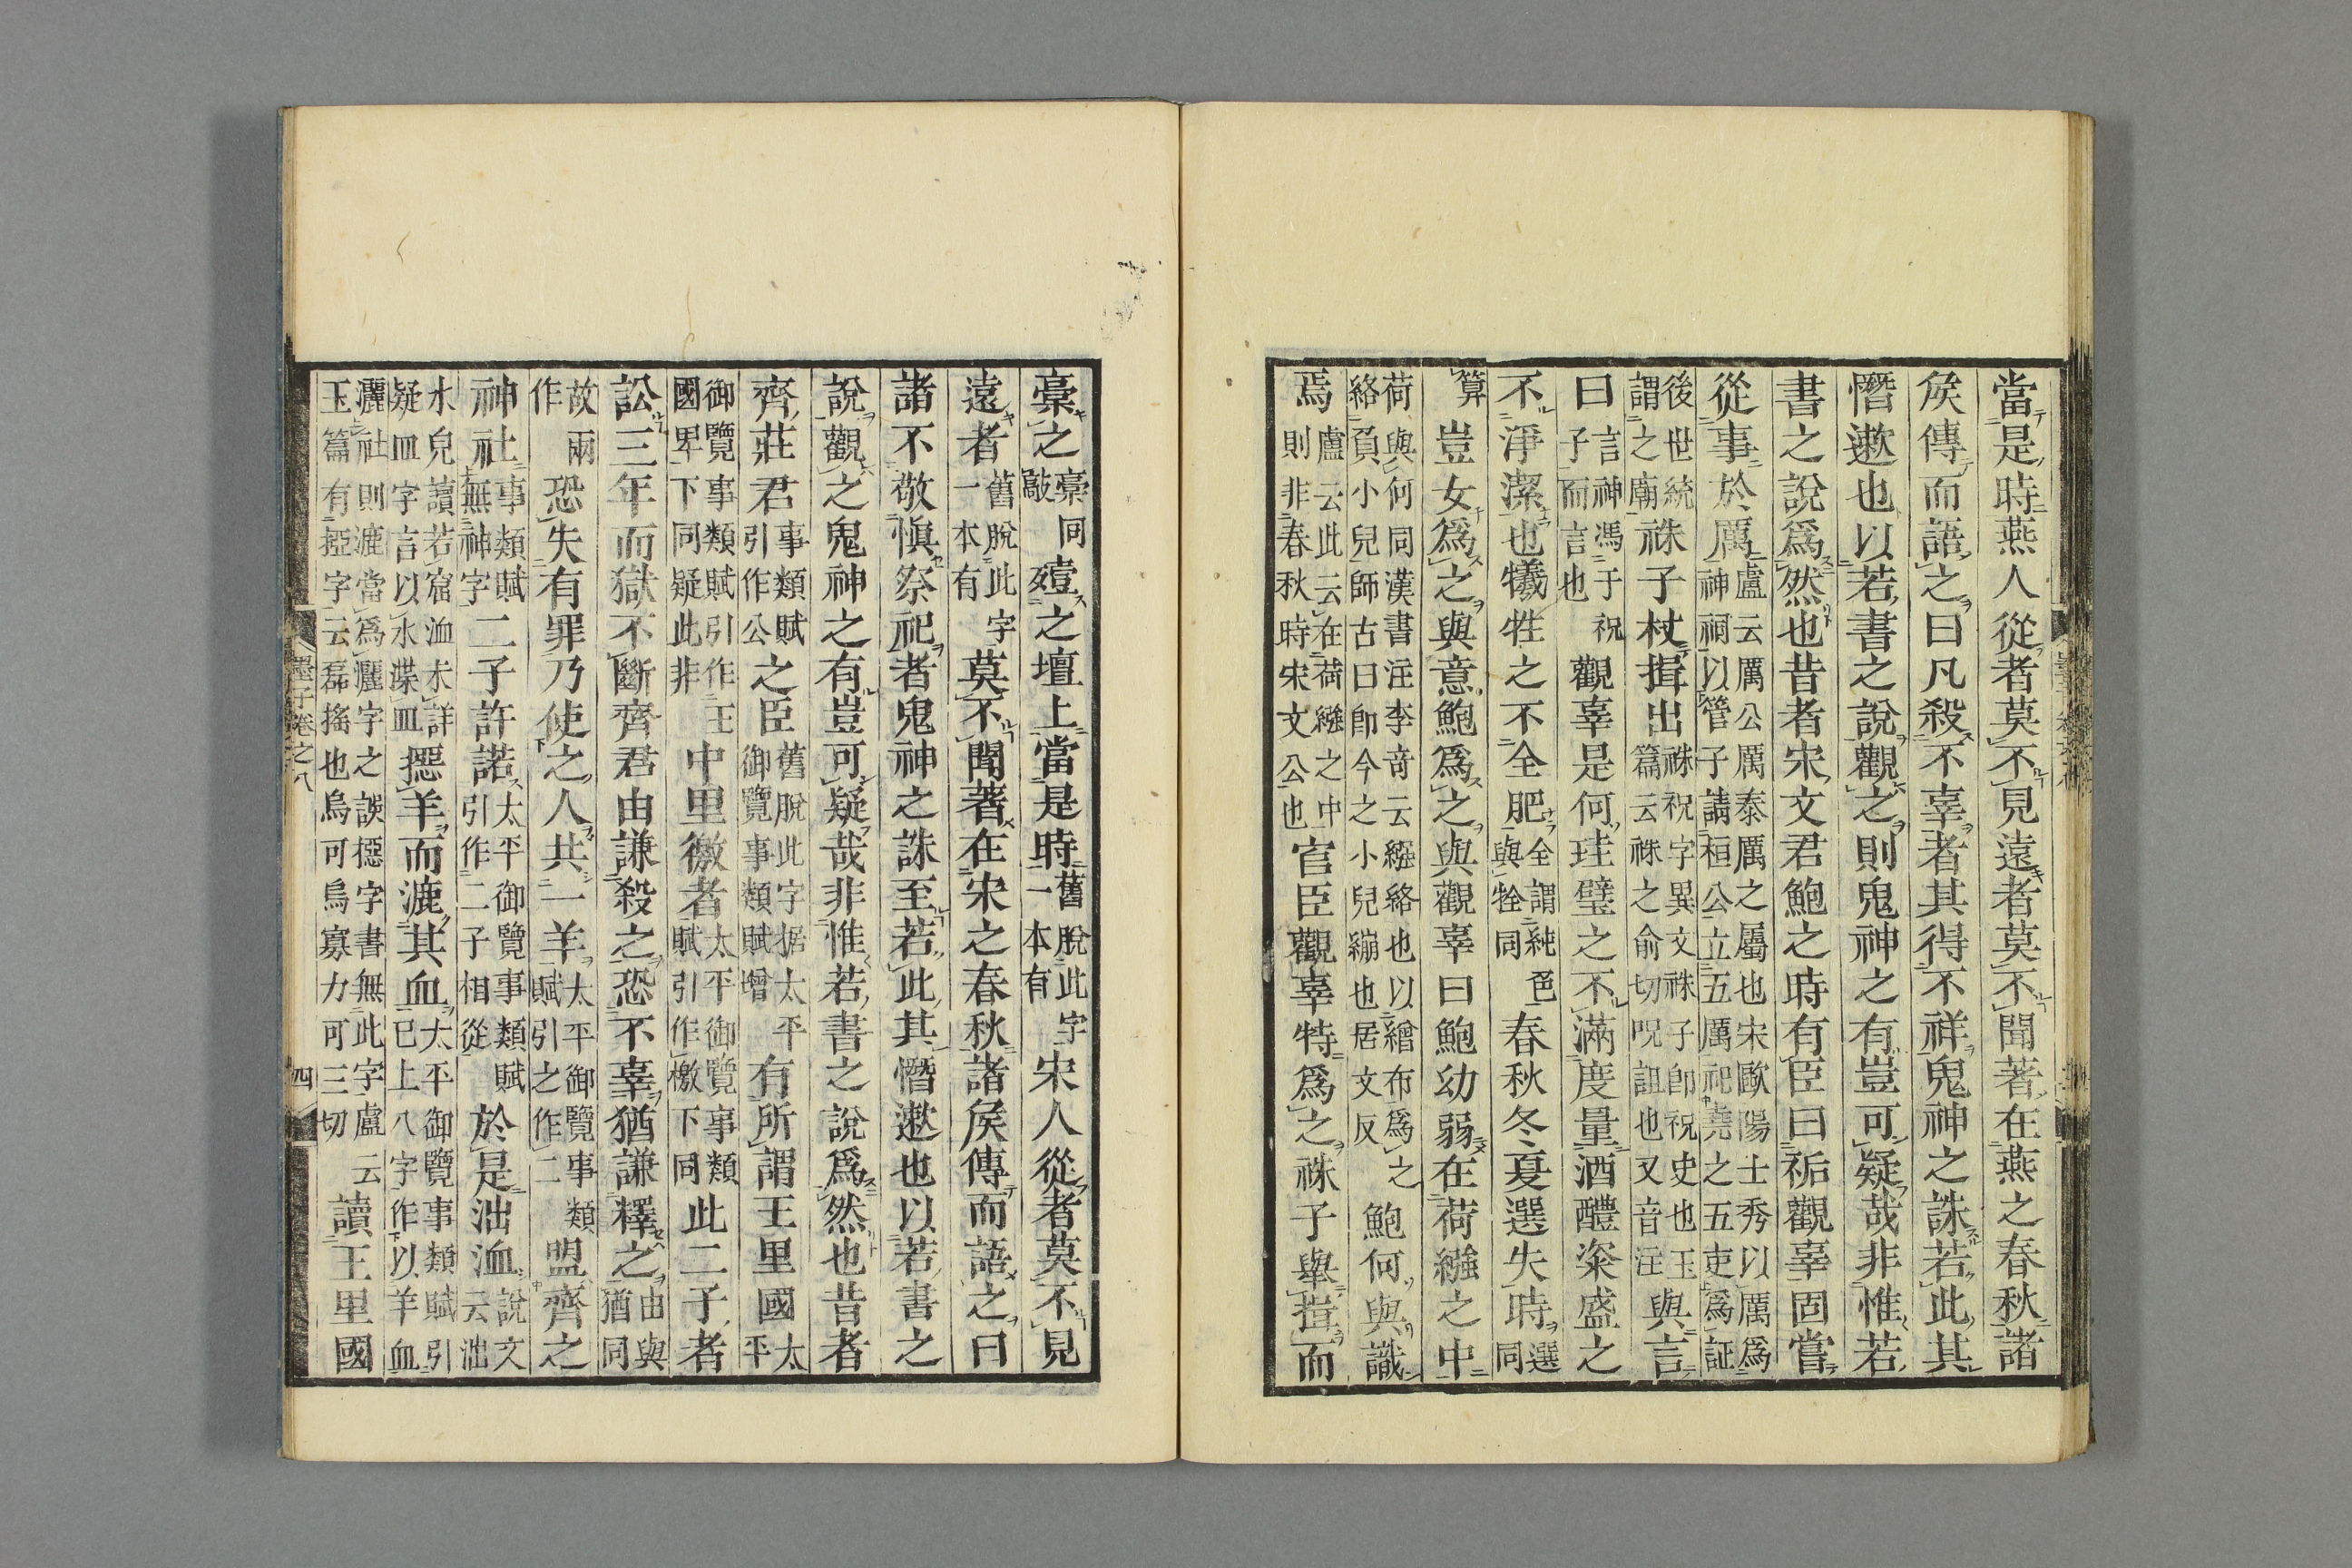 當是時燕人從者莫不見遠者莫不聞著在燕之春秋諸
矦傳而語之曰凡殺不辜者其得不祥鬼神之誅若此其
憯遬也以若書之說觀之則鬼神之有豈可疑哉非惟若
書之說爲然也昔者宋文君鮑之時有臣曰䄏觀辜固嘗
從事於厲盧云厲公厲泰厲之屬也宋歐陽士秀以厲爲神祠以管子請桓公立五厲祀堯之五吏爲証
後世統謂之廟祩子杖揖出祩祝字異文祩子卽祝史也玉篇云祩之俞切呪詛也又音注與言
曰言神馮于祝子而言也觀辜是何珪璧之不滿度量酒醴粢盛之
不淨潔也犧牲之不全肥全謂純色與牷同春秋冬夏選失時選同
算豈女爲之與意鮑爲之與觀辜曰鮑幼弱在荷繈之中
荷與何同漢書注李竒云繈絡也以繒布爲之絡負小兒師古曰卽今之小兒繃也居文反鮑何與識
焉盧云此云在荷繈之中則非春秋時宋文公也官臣觀辜特爲之祩子舉揖而
槀之槀同敲殪之壇上當是時舊脫此字一本有宋人從者莫不見
遠者舊脫此字一本有莫不聞著在宋之春秋諸矦傳而語之曰
諸不敬愼祭祀者鬼神之誅至若此其憯遬也以若書之
說觀之鬼神之有豈可疑哉非惟若書之說爲然也昔者
齊莊君事類賦引作公之臣舊脫此字据太平御覽事類賦增有所謂王里國太平
御覽事類賦引作王國畀下同疑此非中里徼者太平御覽事類賦引作檄下同此二子者
訟三年而獄不斷齊君由謙殺之恐不辜猶謙釋之由與猶同
故兩作恐失有罪乃使之人共一羊太平御覽事類賦引之作二盟齊之
神社事類賦無神字二子許諾太平御覽事類賦引作二子相從於是泏洫說文云泏
水皃讀若窟洫未詳疑血字言以水渫血㨢羊而漉其血太平御覽事類賦引已上八字作以羊血
灑社則漉當爲灑字之誤㨢字書無此字盧云玉篇有挜字云磊搖也烏可烏寡力可三切讀王里國
墨子卷之八
四